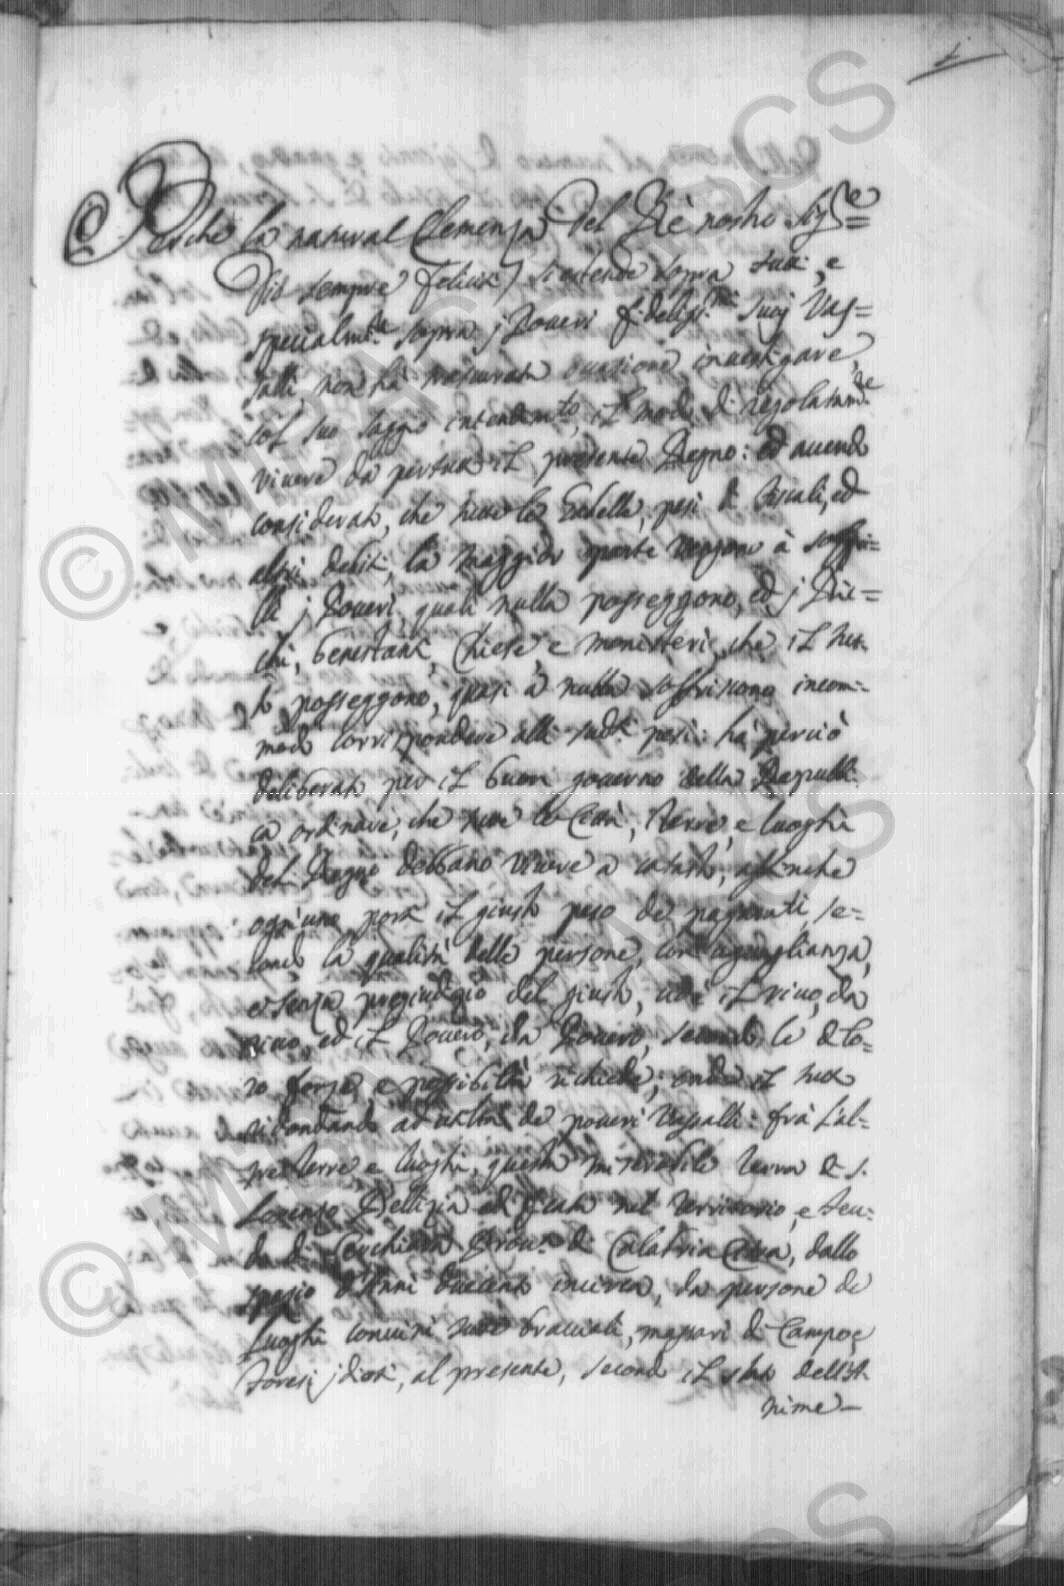 Perche la natural Clemenza del Rè nostro Sig.re
(Dio sempre felicit) si estende sopra tutti, e
specialm.te sopra j Poveri fideliss.mi suoj Vas=
salli, non hà trascurato occasione investigare,
col suo saggio intendim.to, il modo di regolatam.te
vivere da pertutto il presente Regno: ed avendo
considerato, che tutte le Gabelle, pesi di Fiscali, ed
altri debiti, la maggior parte vengono à soffri=
li j Poveri, quali nulla posseggono, ed j Ric=
chi, benestanti, Chiese, e Monisteri, che il tut-
to posseggono, quasi à nulla soffriscono incom=
modo corrispondere alli sud.ti pesi: hà perciò
deliberato per il buon governo della Republi=
ca ordinare, che tutte le Città, Terre, e luoghi
del Regno debbano vivere a catasto, affinche
ogn'uno porti il giusto peso de pagamenti, se=
condo la qualità delle persone, con uguaglianza,
e senza pregiudizio del giusto, cioè il ricco, da
ricco, ed il Povero, da Povero, secondo le di lo=
ro forze, e possibiltà richiede; onde il tutto
ridondando ad utiltà de poveri Vassalli: frà l'al=
tre terre, e luoghi, questa miserabile Terra di S.
Lorenzo Bellizia edificata nel Territorio, e feu=
do di Cerchiara Prov.a di Calabria Citra, dallo
spazio d'anni duecento incirca, da persone de
luoghi convicini tutte bracciali, massari di Campo, e
foresi jdioti, al presente, secondo il stato dell'A-
nime –